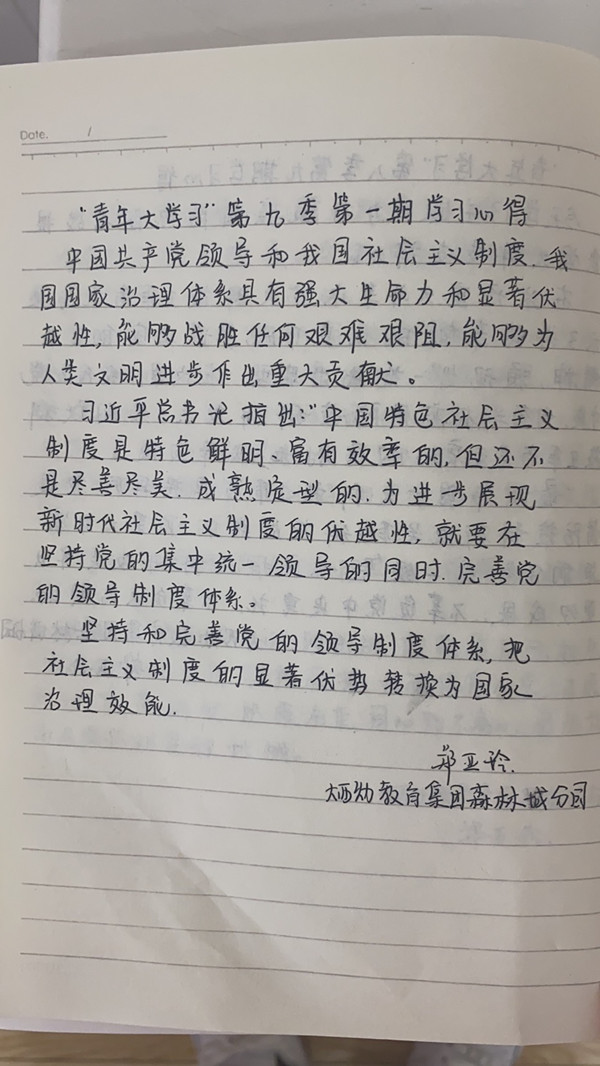 Date. /
"青年大学习"第九季第一期学习心得
中国共产党领导和我国社会主义制度.我
国国家治理体系具有强大生命力和显著优
越性,能够战胜任何艰难艰阻,能够为
人类文明进步作出重大贡献。
习近平总书记指出:"中国特色社会主义
制度是特色鲜明、富有效率的,但还不
是尽善尽美.成熟定型的.为进一步展现
新时代社会主义制度的优越性,就要在
坚持党的集中统一领导的同时.完善党
的领导制度体系。
坚持和完善党的领导制度体系,把
社会主义制度的显著优势转换为国家
治理效能.
郑亚玲.
幼教育集团森林城分园